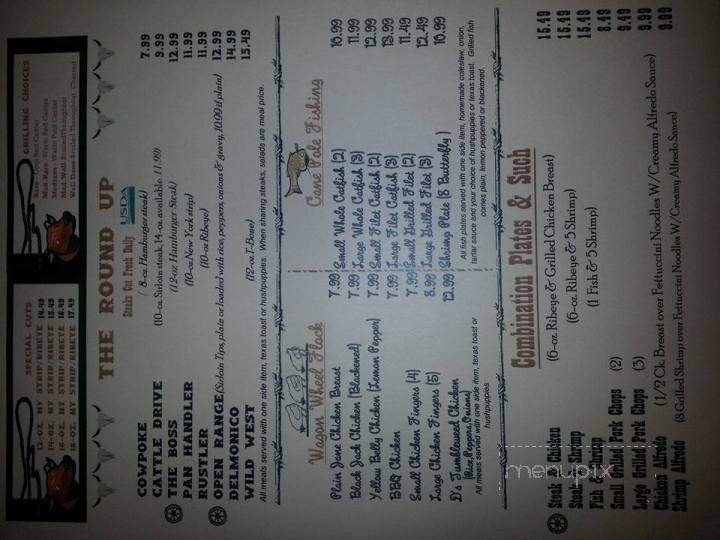 SPECIAL CUTS
12-OZ. NY STRIP/RIBEYE 14.49
14-OZ. NY STRIP/RIBEYE 15.49
16-OZ. NY STRIP/RIBEYE 16.49
18-OZ. NY STRIP/RIBEYE 17.49
GRILLING CHOICES
Rare- Cool Red Center
Med Rare- Warm Red Center
Medium- Warm Pink Center
Med. Well- Broiled Throughout
Well Done- Broiled Throughout, Charred
THE ROUND UP
Steaks Cut Fresh Daily
USDA
COWPOKE (8-oz. Hamburger steak) 7.99
CATTLE DRIVE (10-oz. Sirloin steak, 14-oz. available 11.99) 9.99
THE BOSS (12-oz Hamburger Steak) 12.99
PAN HANDLER (10-oz New York strip) 11.99
RUSTLER (10-oz Ribeye) 11.99
OPEN RANGE (Sirloin Tips, plain or loaded with rice, peppers, onions & gravy, 10.99 if plain) 12.99
DELMONICO 14.99
WILD WEST (12-oz. T-Bone) 15.49
All meals served with one side item, texas toast or hushpuppies. When sharing steaks, salads are meal price.
Wagon Wheel Flock
Plain Jane Chicken Breast 7.99
Black Jack Chicken (Blackened) 7.99
Yellow Belly Chicken (Lemon Pepper) 7.99
BBQ Chicken 7.99
Small Chicken Fingers (4) 7.99
Large Chicken Fingers (5) 8.99
D's Tumbleweed Chicken 12.99
(Rice, Peppers, Onions)
All meals served with one side item, texas toast or
hushpuppies
Cane Pole Fishing
Small Whole Catfish (2) 10.99
Large Whole Catfish (3) 11.99
Small Filet Catfish (2) 12.99
Large Filet Catfish (3) 13.99
Small Grilled Filet (2) 11.49
Large Grilled Filet (3) 12.49
Shrimp Plate (8 Butterfly) 10.99
All fish plates served with one side item, homemade coleslaw, onion,
tartar sauce and your choice of hushpuppies or texas toast. Grilled fish
comes plain, lemon peppered or blackened.
Combination Plates & Such
Steak & Chicken (6-oz. Ribeye & Grilled Chicken Breast) 15.49
Steak & Shrimp (6-oz. Ribeye & 5 Shrimp) 15.49
Fish & Shrimp (1 Fish & 5 Shrimp) 15.49
Small Grilled Pork Chops (2) 8.49
Large Grilled Pork Chops (3) 9.49
Chicken Alfredo (1/2 Ck. Breast over Fettuccini Noodles W/Creamy Alfredo Sauce) 9.99
Shrimp Alfredo (8 Grilled Shrimp over Fettuccini Noodles W/Creamy Alfredo Sauce) 9.99
menupix